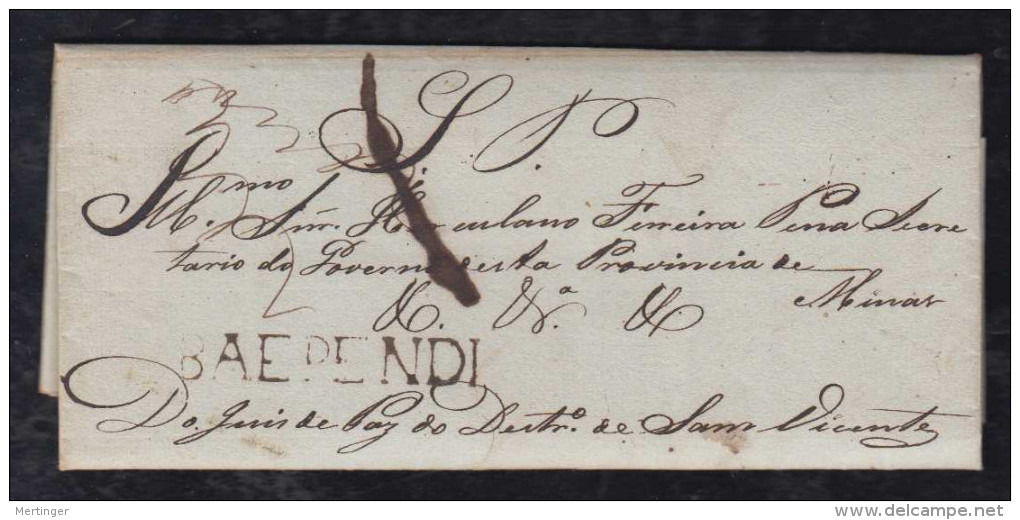 S. P.
Illmo. Sñr. Herculano Ferreira Pena Secre
tario do Governo desta Provincia de
Minas
&. &.a &
BAEPENDI
Do Juis de Paz do Destro. de Sam Vicente
Mertinger
delcampe.net